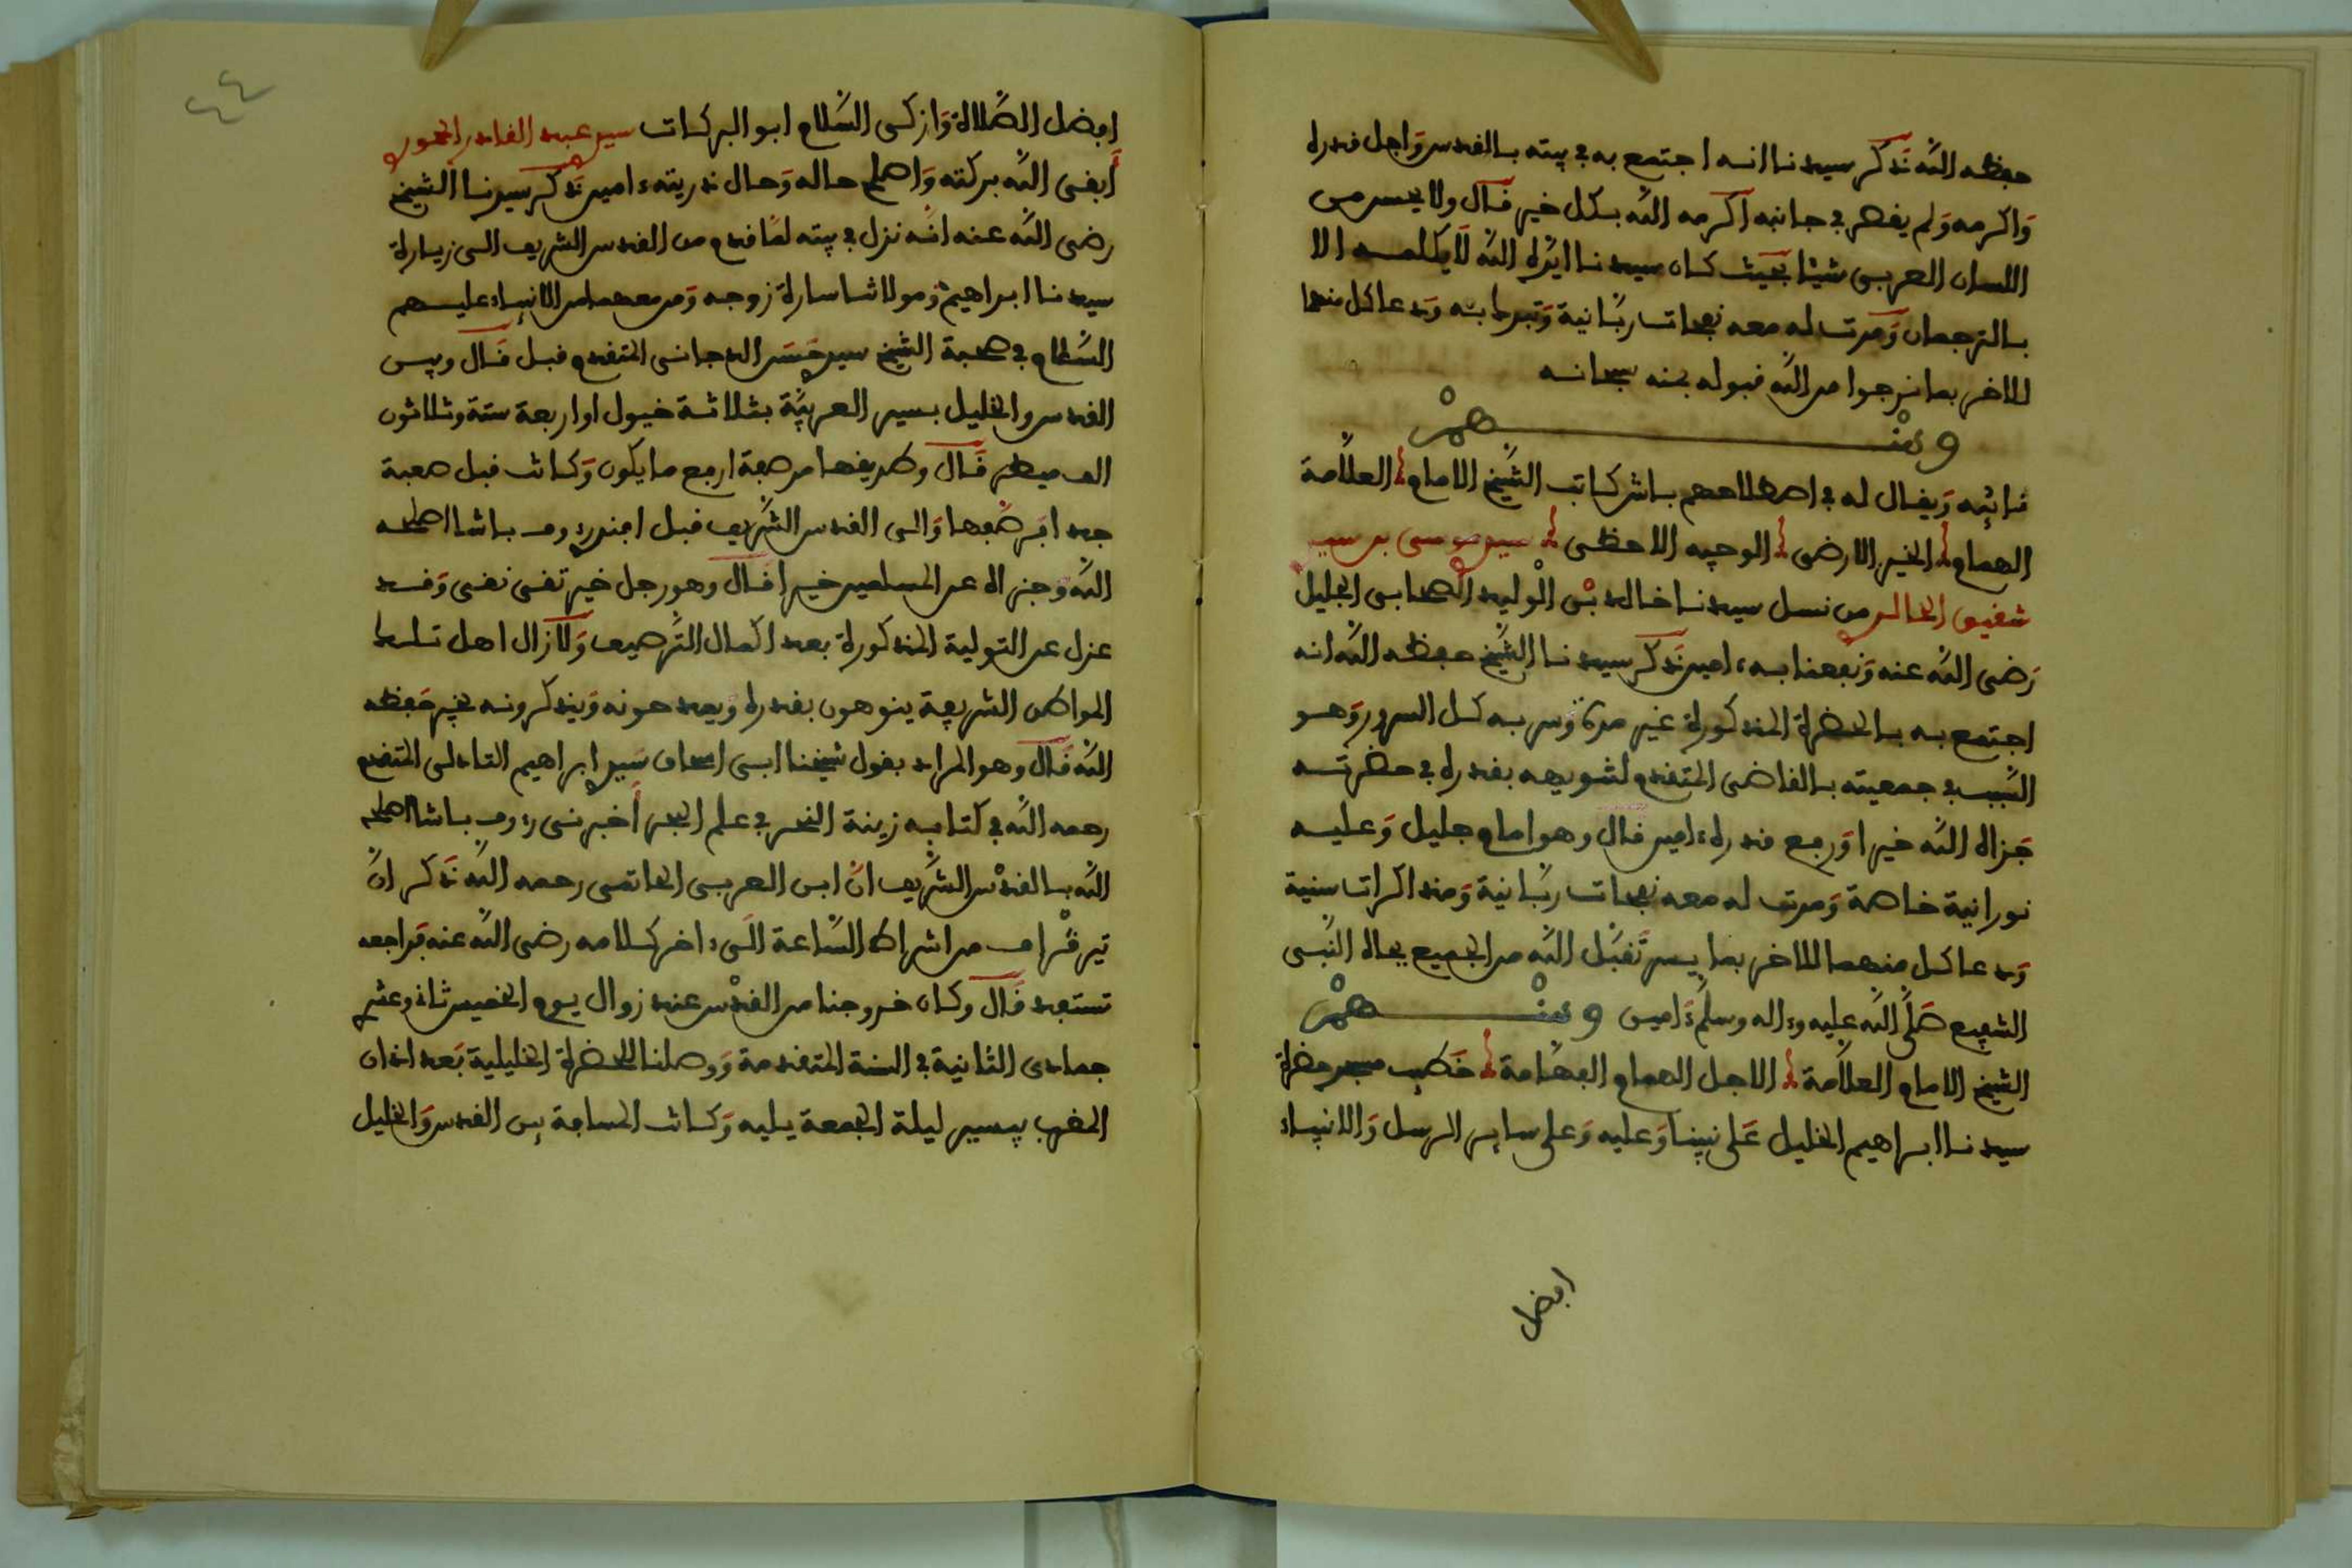 حفظه الله ذكر سيدنا انه اجتمع به في بيته بالقدس وأجل قدره
وأكرمه ولم يقصر في جانبه أكرمه الله بكل خير قال ولا يحسن من
اللسان العربي شيئا بحيث كان سيدنا ايده الله لا يكلمه الا
بالترجمان ومرت له معه نفحات ربانية وتبرك به ودعا كل منهما
للاخر بما نرجوا من الله قبوله بمنه سبحانه
ومنهم
نائبه ويقال له في اصطلاحهم باش كاتب الشيخ الامام العلامة
الهمام الخير الارضى الوجيه الاحظى سيدي موسى بن سيدي
شفيق الخالدي من نسل سيدنا خالد بن الوليد الصحابي الجليل
رضي الله عنه ونفعنا به ءامين ذكر سيدنا الشيخ حفظه الله انه
اجتمع به بالحضرة المذكورة غير مرة وسر به كل السرور وهو
السبب في جمعيته بالقاضي المتقدم لتنويهه بقدره في حضرته
جزاه الله خيرا ورفع قدره ءامين قال وهو امام جليل وعليه
نورانية خاصة ومرت له معه نفحات ربانية ومذاكرات سنية
ودعا كل منهما للاخر بما يسر تقبل الله من الجميع بجاه النبي
الشفيع صلى الله عليه وءاله وسلم ءامين ومنهم
الشيخ الامام العلامة الاجل الهمام الفهامة خطيب مسجد حضرة
سيدنا ابراهيم الخليل على نبينا وعليه وعلى ساير الرسل والانبياء
افضل
٤٤
افضل الصلاة وازكى السلام ابو البركات سيدي عبد القادر
أبقى الله بركته واصلح حاله وحال ذريته ءامين ذكر سيدنا الشيخ
رضي الله عنه انه نزل في بيته لما قدم من القدس الشريف الى زيارة
سيدنا ابراهيم ومولاتنا سارة زوجه ومن معهما من الانبياء عليهم
السلام في صحبة الشيخ سيدي حسن الدجاني المتقدم قبل قال وبين
القدس والخليل بسير العربية بثلاثة خيول او اربعة ستة وثلاثون
الف ميطر قال وطريقها مرصفة ارفع ما يكون وكانت قبل صعبة
جدا رصفها والى القدس الشريف قبل افندي رءوف باشا اصلحه
الله وجزاه عن المسلمين خيرا قال وهو رجل خير تقي نقي وقد
عزل عن التولية المذكورة بعد اكمال الترصيف ولا زال اهل تلك
المواطن الشريفة ينوهون بقدره ويمدحونه ويذكرونه بخير حفظه
الله قال وهو المراد بقول شيخنا ابي اسحاق سيدي ابراهيم التادلي المتقدم
رحمه الله في كتابه زينة النحر في علم البحر أخبرني رءوف باشا اصلحه
الله بالقدس الشريف ان ابن العربي الحاتمي رحمه الله ذكر ان
تيرقراف من اشراط الساعة الى ءاخر كلامه رضي الله عنه فراجعه
تستفد قال وكان خروجنا من القدس عند زوال يوم الخميس ثاني وعشري
جمادى الثانية في السنة المتقدمة ووصلنا للحضرة الخليلية بعد اذان
المغرب بيسير ليلة الجمعة يليه وكانت المسافة بين القدس والخليل